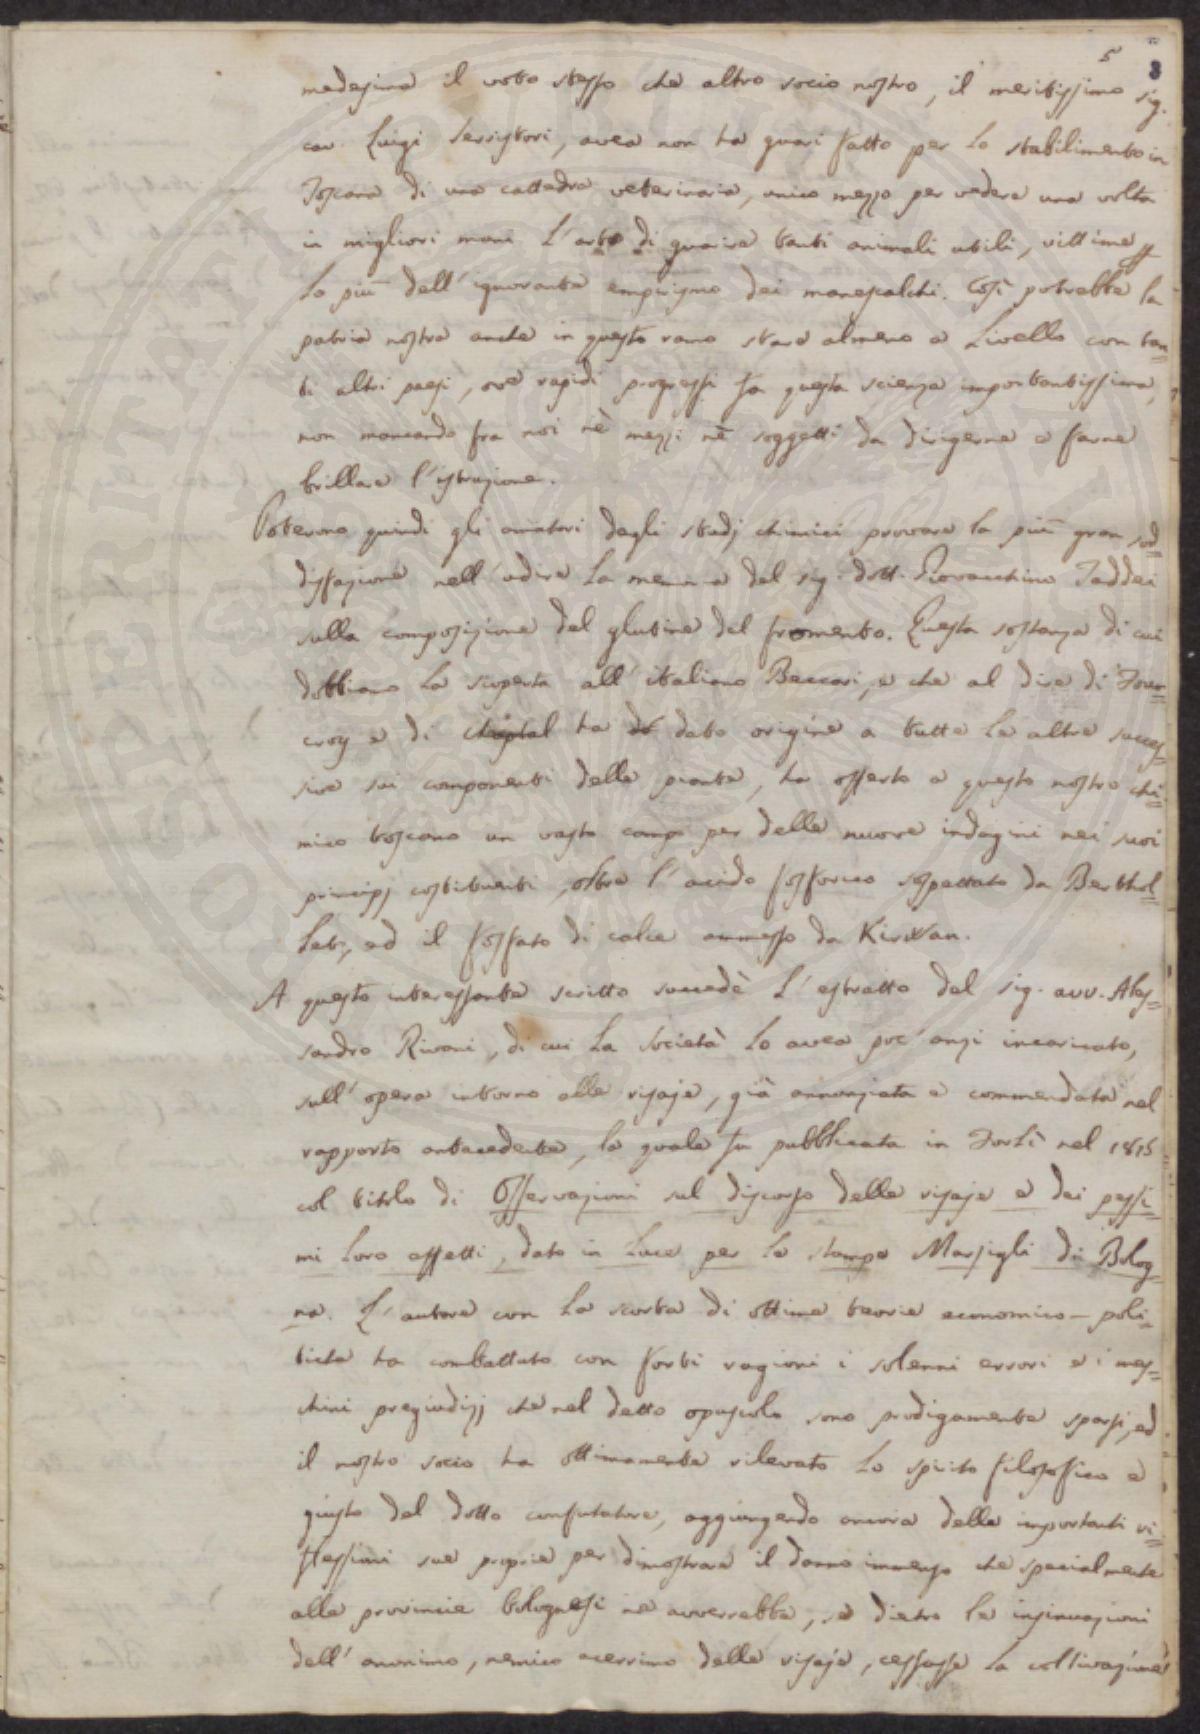 5
8
medesima il voto stesso che altro socio nostro, il meritissimo sig.
cav. Luigi Serristori, avea non ha guari fatto per lo stabilimento in
Toscana di una cattedra veterinaria, unico mezzo per vedere una volta
in migliori mani l'arte di guarire tanti animali utili, vittime
lo più dell'ignorante empirismo dei manescalchi. Così potrebbe la
patria nostra anche in questo ramo stare almeno a livello con tan=
ti altri paesi, ove rapidi progressi fa questa scienza importantissima,
non mancando fra noi nè mezzi nè soggetti da dirigerne e farne
brillare l'istruzione.
Poterono quindi gli amatori degli studj chimici provare la più gran sod=
disfazione nell'udire la memoria del sig. dott. Giovacchino Taddei
sulla composizione del glutine del fromento. Questa sostanza di cui
dobbiamo la scoperta all'italiano Beccari, e che al dire di Four=
croy e di Chaptal ha dato origine a tutte le altre succes=
sive sui componenti delle piante, ha offerto a questo nostro chi=
mico toscano un vasto campo per delle nuove indagini nei suoi
principj costituenti, oltre l'acido fosforico sospettato da Berthol=
let, ed il fosfato di calce ammesso da Kirwan.
A questo interessante scritto succedè l'estratto del sig. avv. Ales=
sandro Rivani, di cui la Società lo avea poc'anzi incaricato,
sull'opera intorno alle risaje, già annunziata e commendata nel
rapporto antecedente, la quale fu pubblicata in Forlì nel 1815
col titolo di Osservazioni sul discorso delle risaje e dei pessi=
mi loro effetti, dato in luce per le stampe Marsigli di Bolog=
na. L'autore con la scorta di ottime teorie economico-poli=
tiche ha combattuto con forti ragioni i solenni errori e i mes=
chini pregiudizj che nel detto opuscolo sono prodigamente sparsi, ed
il nostro socio ha ottimamente rilevato lo spirito filosofico e
giusto del dotto confutatore, aggiungendo ancora delle importanti ri=
flessioni sue proprie per dimostrare il danno immenso che specialmente
alle provincie bolognesi ne avverrebbe, se dietro le insinuazioni
dell'anonimo, nemico acerrimo delle risaje, cessasse la coltivazione